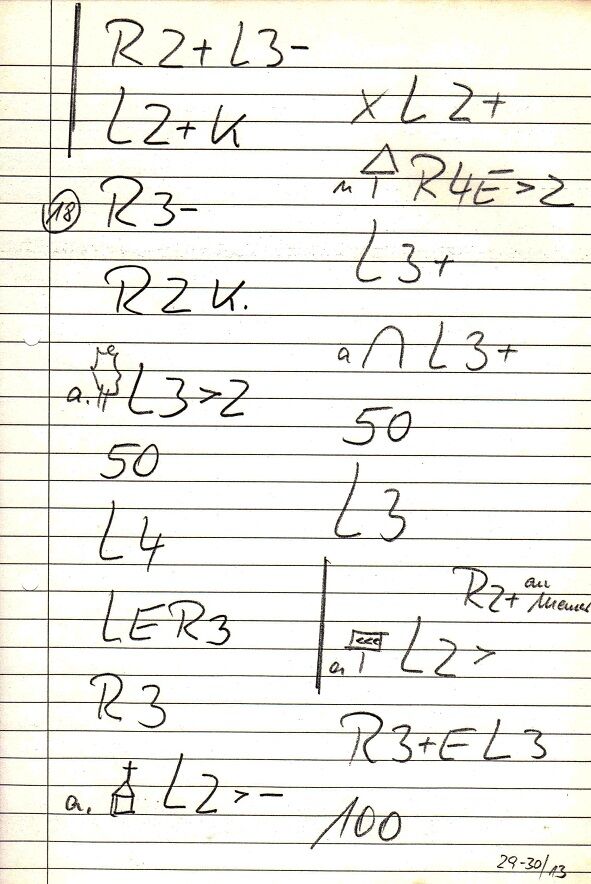 R2+L3-
L2+K
18 R3-
R2 K.
a. L3>2
50
L4
LER3
R3
a. L2>-
x L2+
n R4E>2
L3+
a ∩ L3+
50
L3
R2+ an
a. <<< L2>
R3+E L3
100
29-30/13